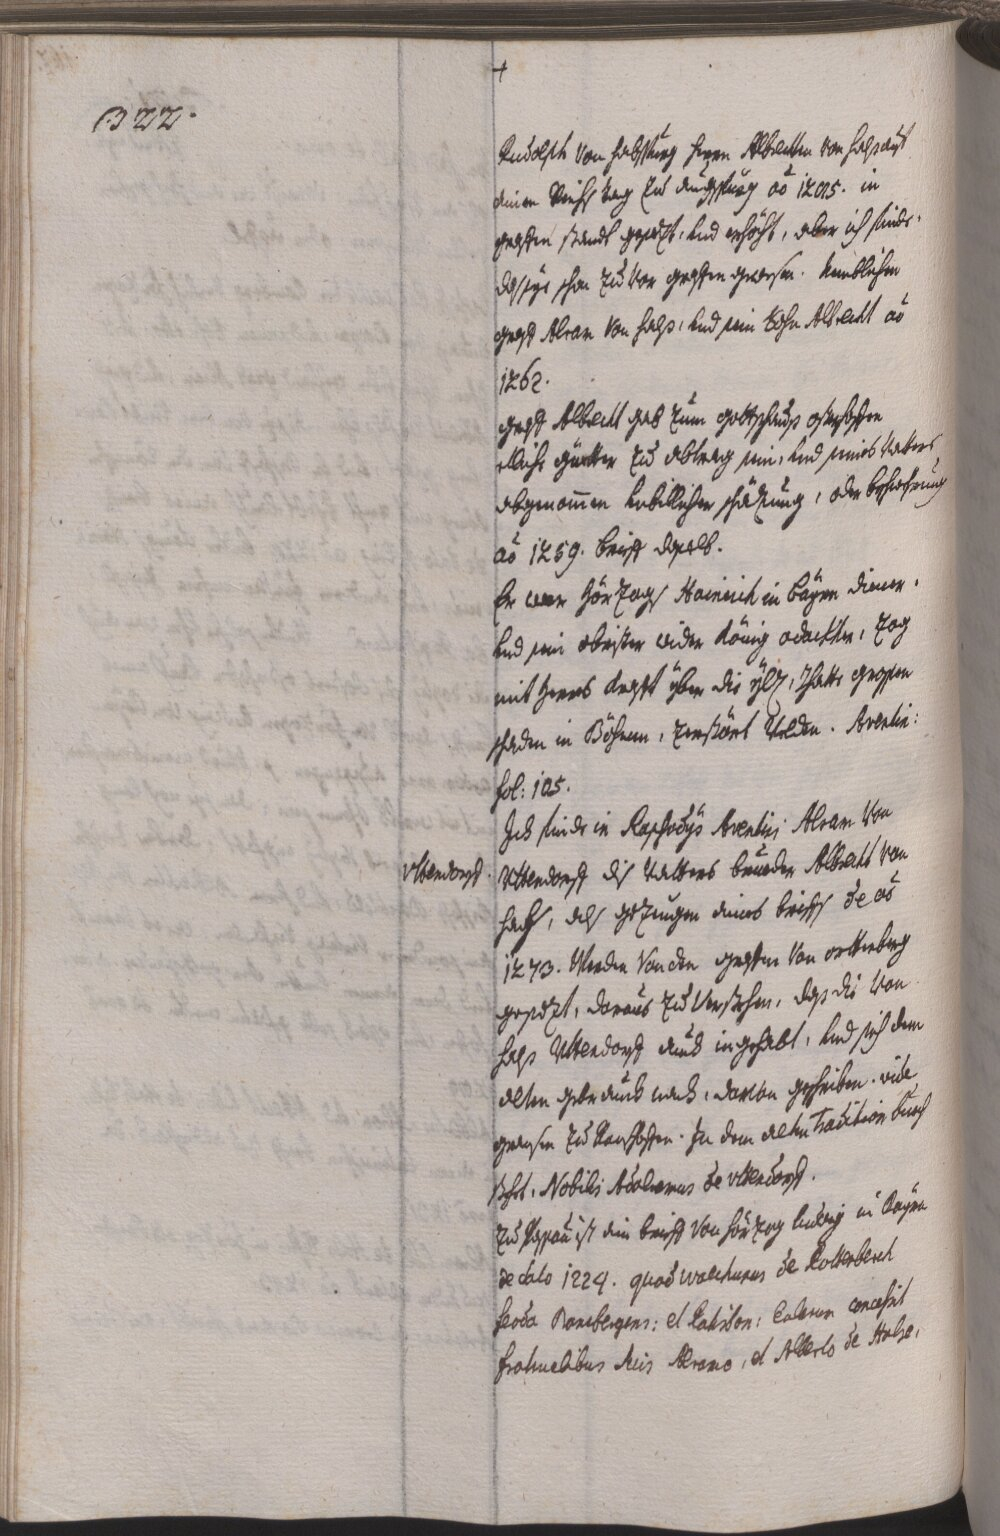 322.
Rudolph von Habspurg herrn Albrechten von Halß auf
einen Reichs tag zu Augspurg aõ 1285. in
graffen standt gesezt, und erhöcht, aber ich finde,
daß sye schon zu vor graffen gewesen. Nemblichen
graff Alram von Halß, und sein Sohn Albrecht aõ
1262.
graff Albrecht gab zum gottshauß osterhoffen
etliche güetter zu abtrag sein, und seines Vatters
abgenommen unbillicher schäzung, oder beschwehrung
aõ 1259. brieff daselb.
Er war Herzogs Hainrich in Bayrn diener,
und sein obrister wider König odackher, zog
mit heers krafft über die ylz, thatte grossen
schaden in Böhem, zerstört Velden. Aventin:
fol: 105.
Ich finde in Rapsodys Aventini Alram von
Uttendorff.
Uttendorff dis Vatters bruedter Albrecht von
Halß, als gezeugen eines brieffs de aõ
1273. Werden von den graffen von orttenberg
gesezt, daraus zu verstehen, daß die von
Halß Uttendorff auch ingehabt, und sich dem
alten gebrauch nach, darvon geschriben. vide
graffen zu Ranshoffen. In dem alten Tradition buech
steht, Nobilis Adalramus de Uttendorff.
Zu Passau ist ein brieff von Herzog Ludwig in Bayrn
de dato 1224. quod walchunus de Rotterbach
feoda Bambergens: et Ratisbon: Ecclesiarum concessit
fratruelibus suis Alramo, et Alberto de Halse,